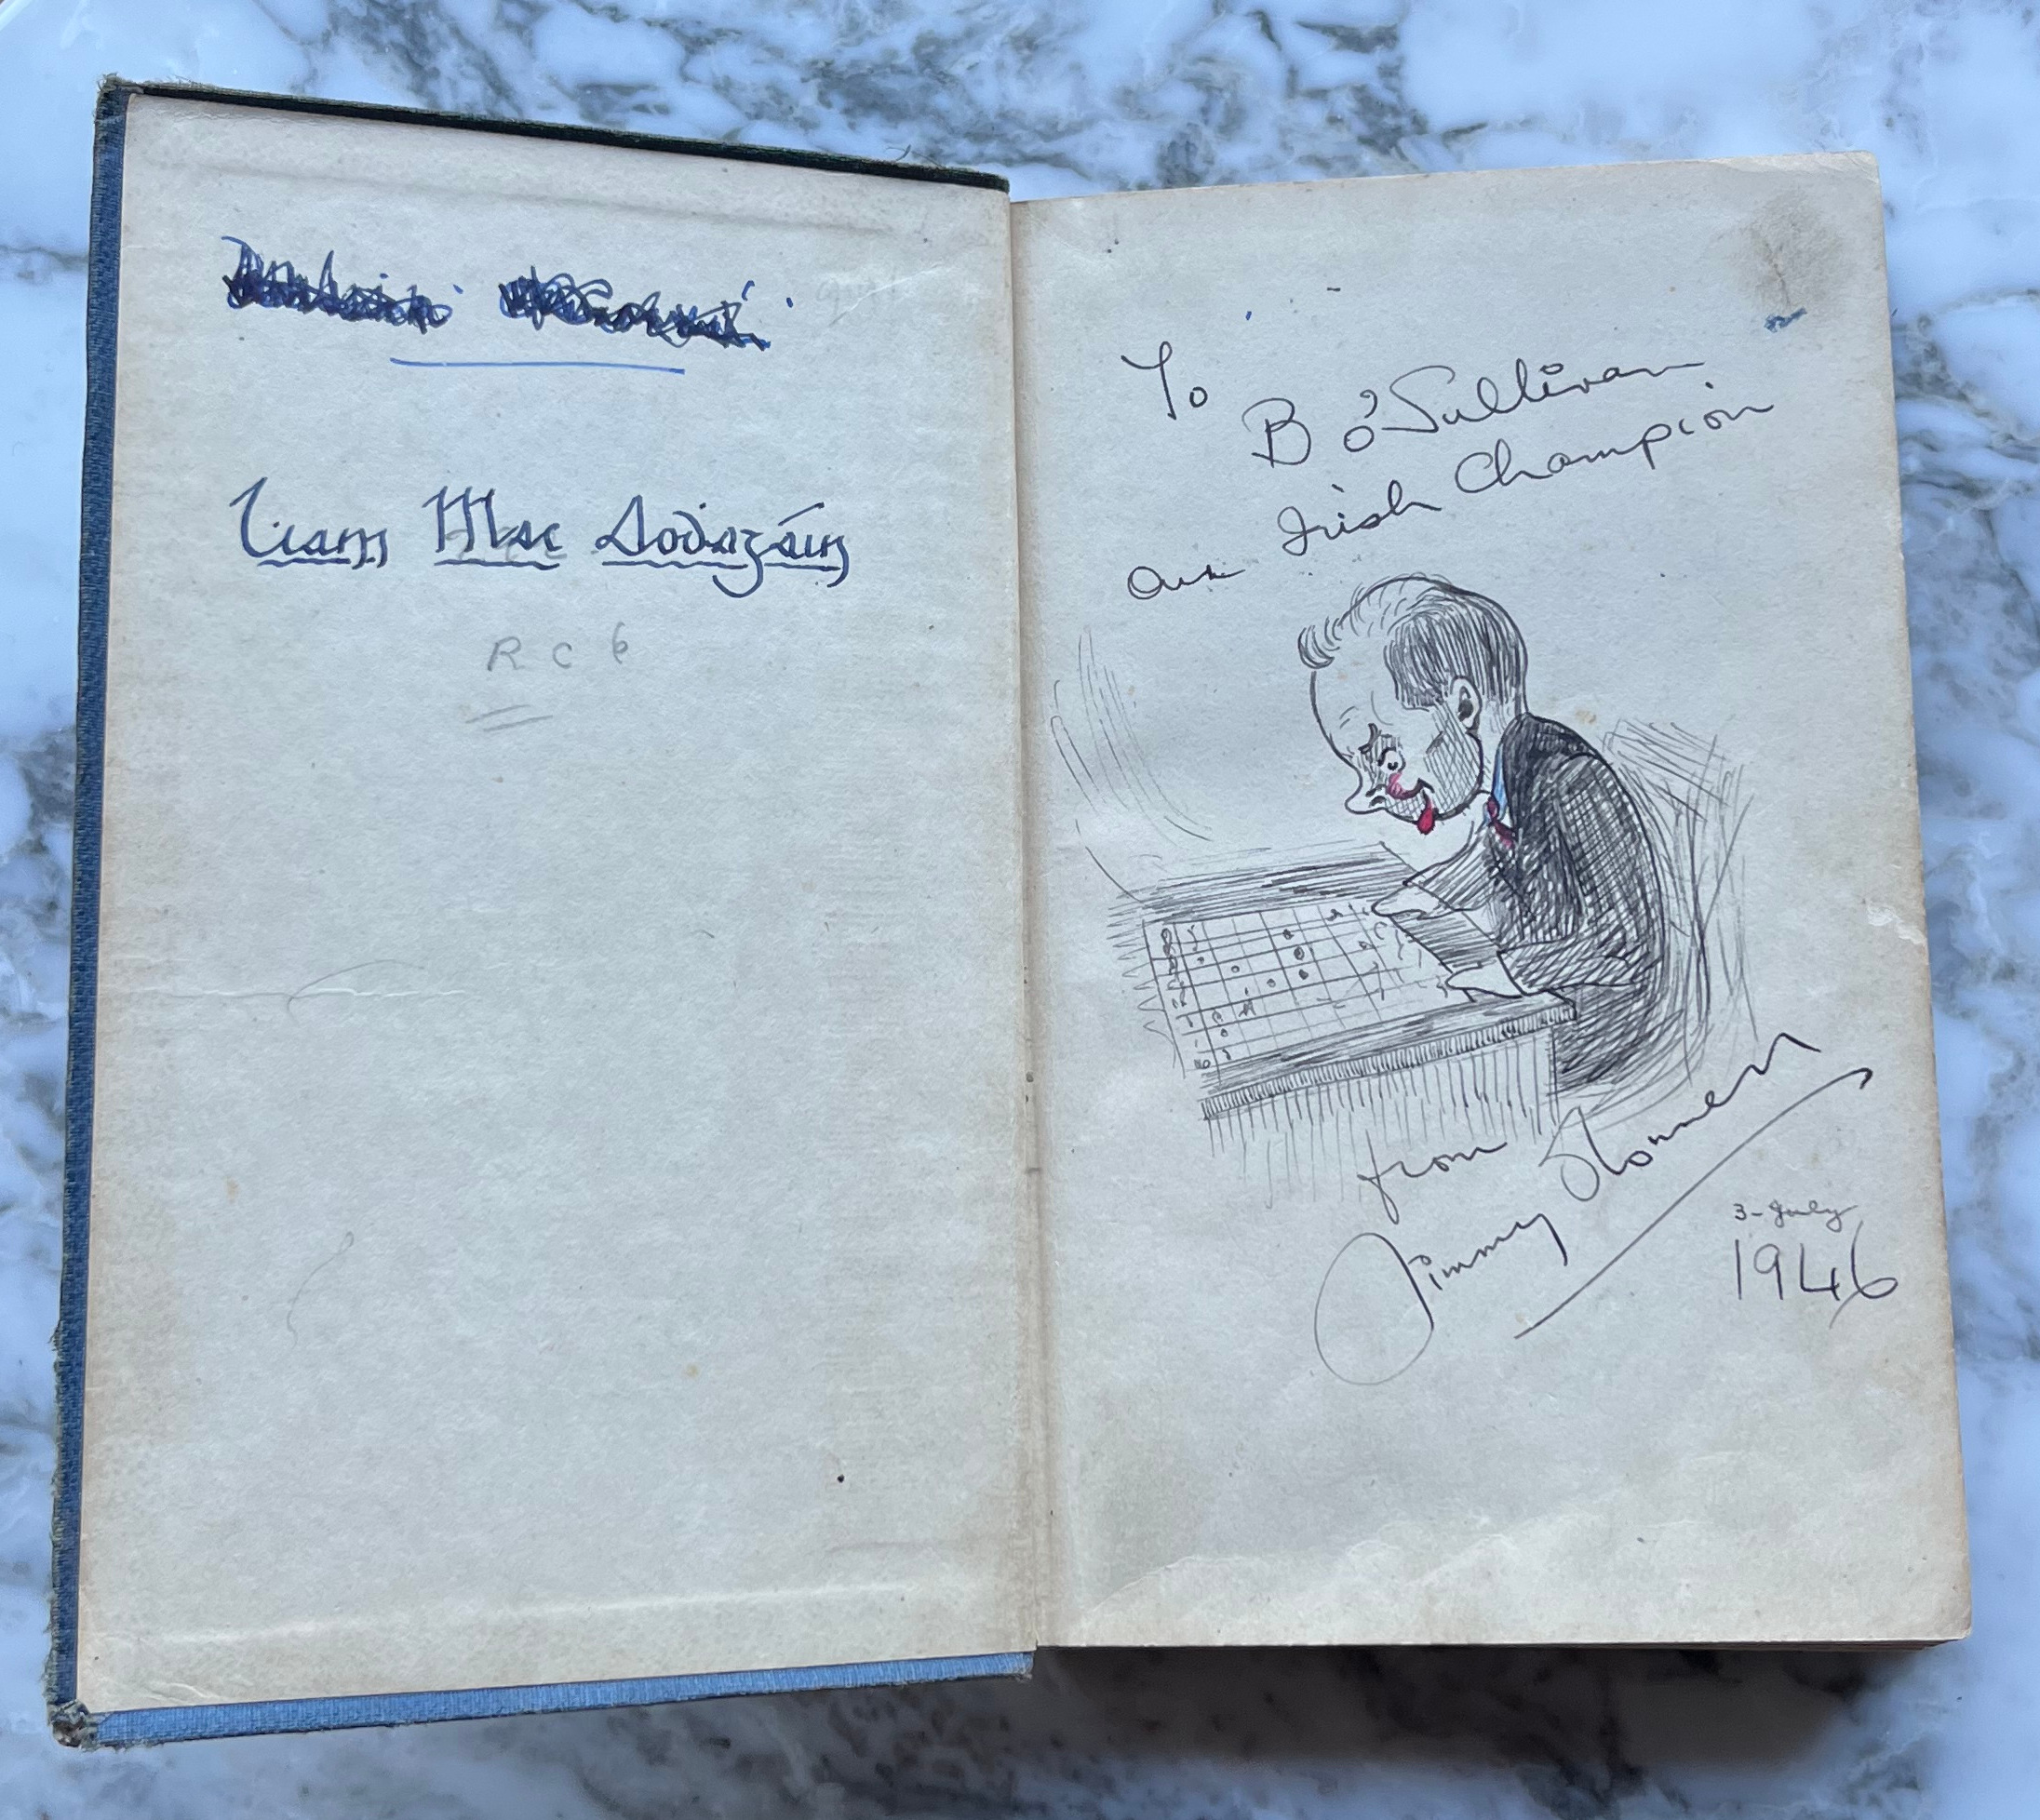 Liam Mac Aoḋagáin
R C 6
To
B O'Sullivan
our Irish Champion
from
Jimmy
3-July
1946